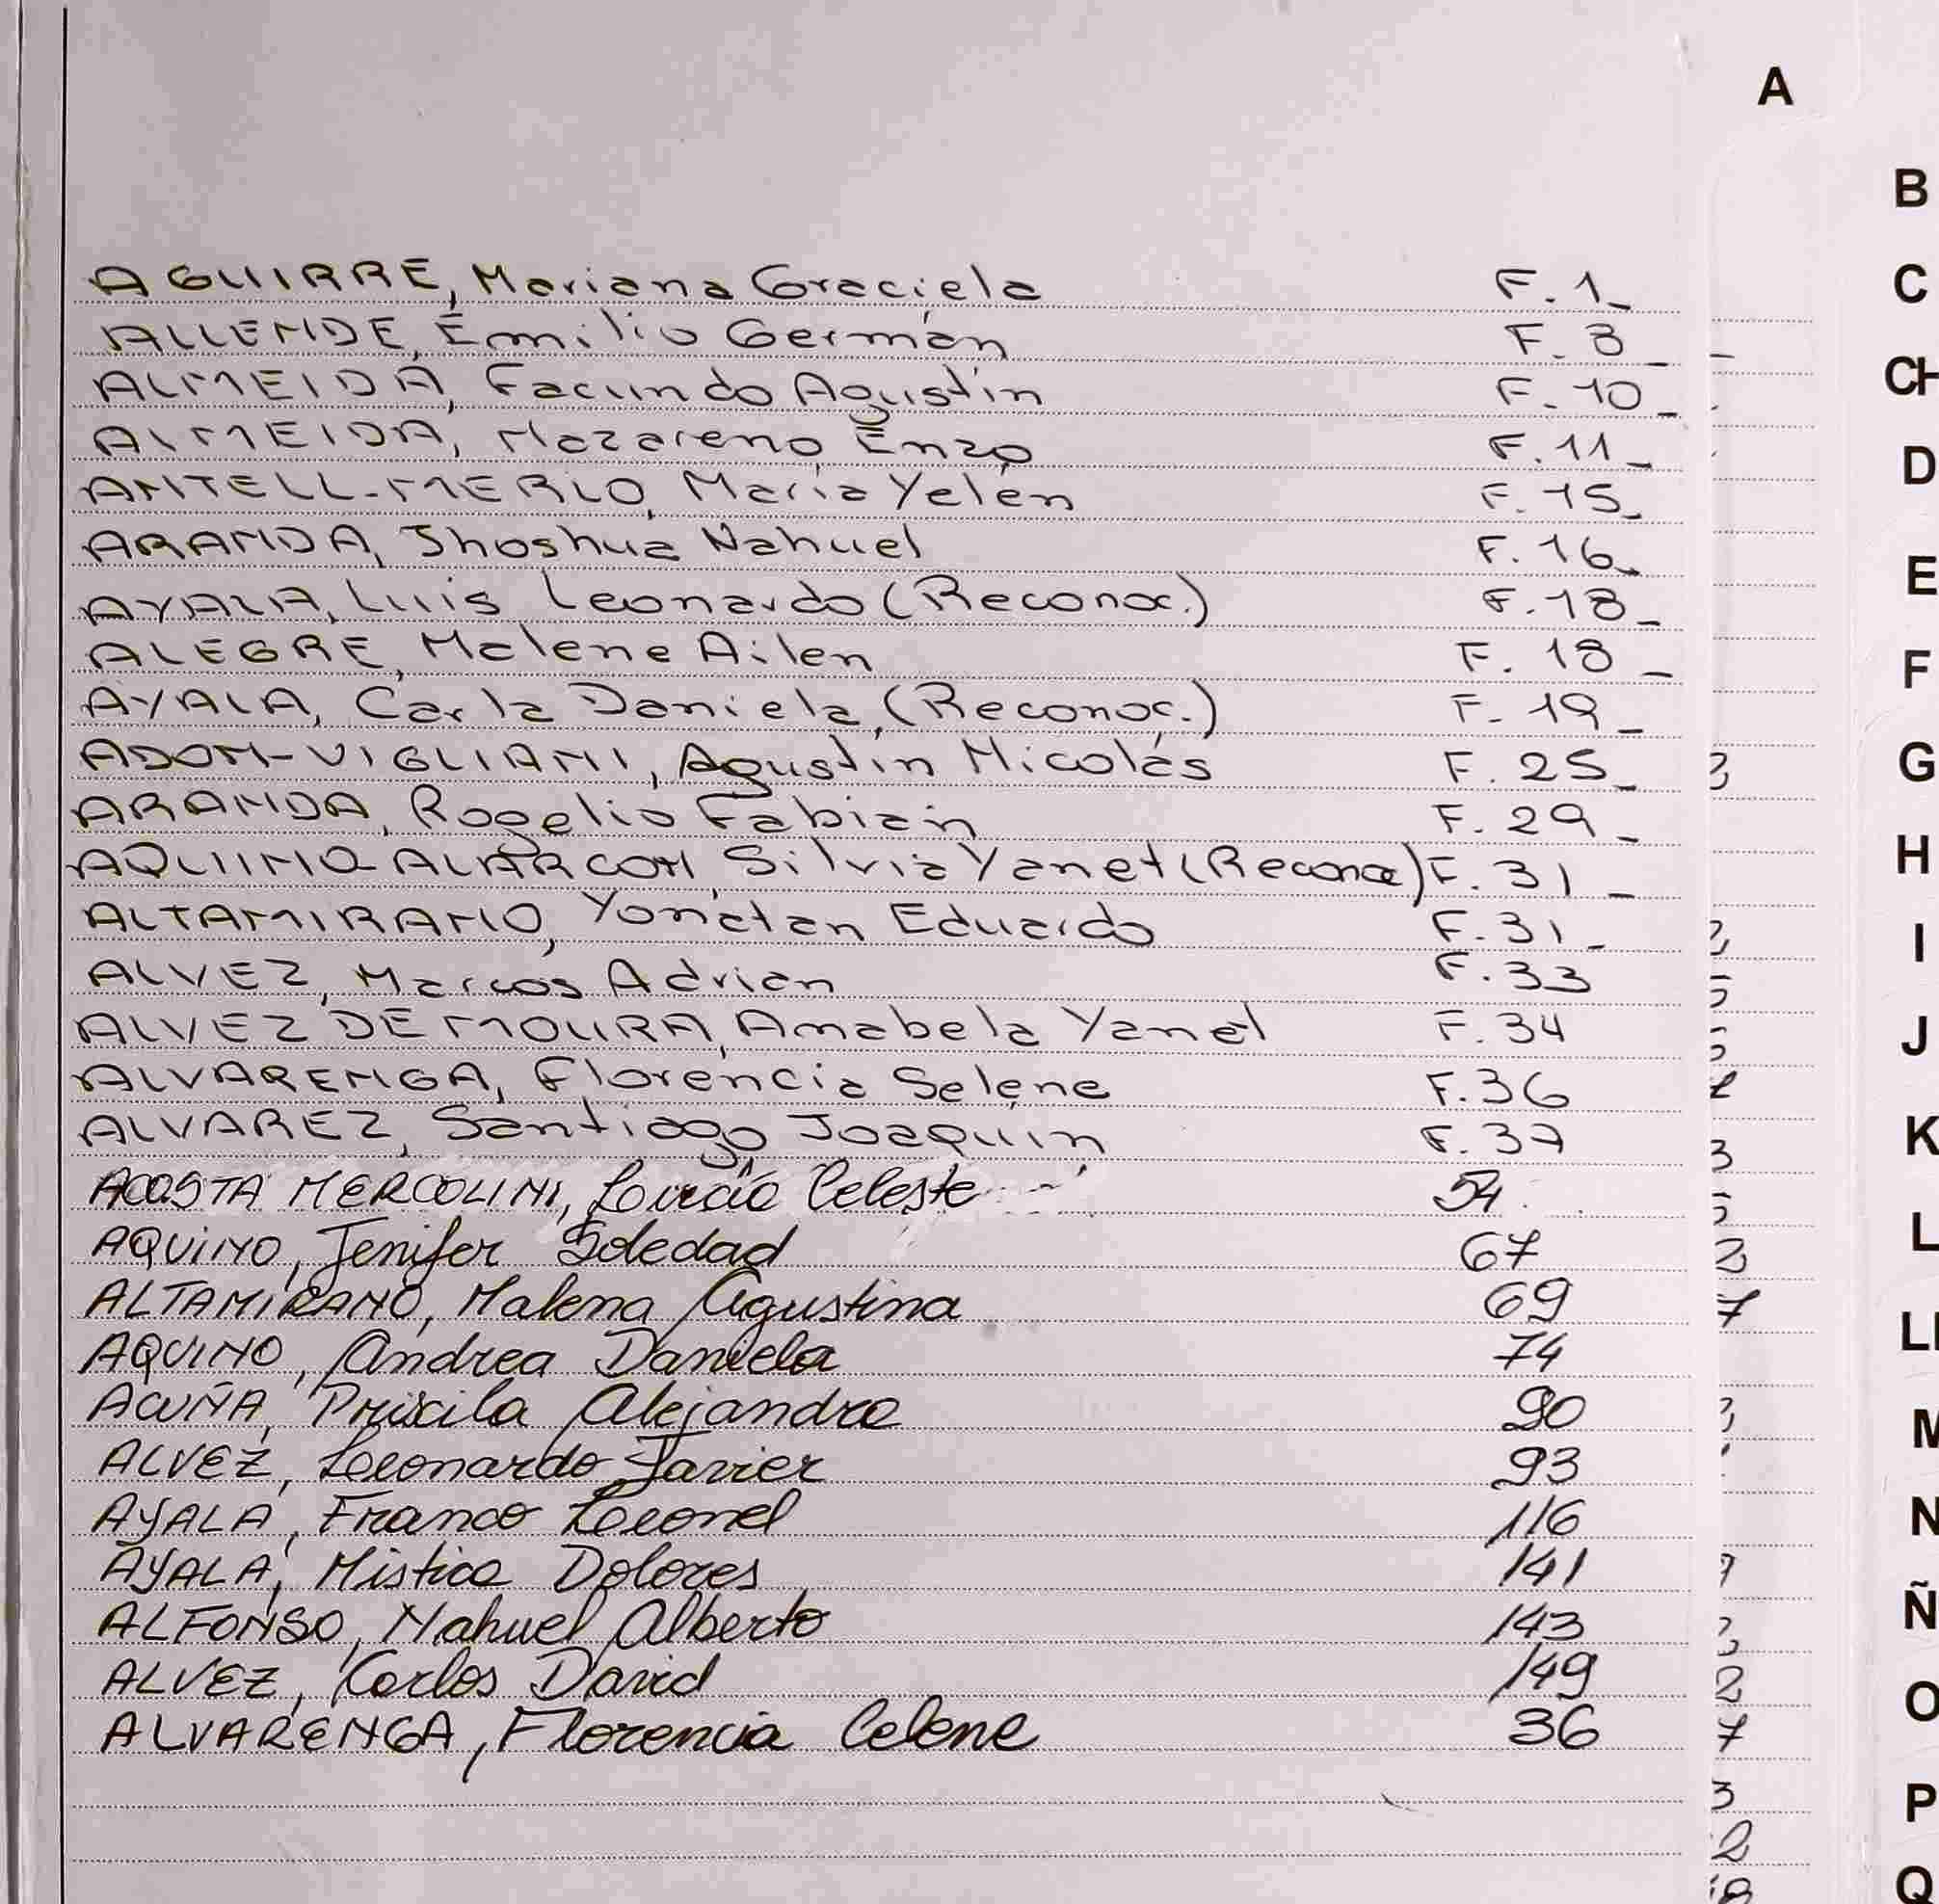 A
AGUIRRE, Mariana Graciela F. 1_
ALLENDE, Emilio Germán F. 8_
ALMEIDA, Facundo Agustín F. 10_
ALMEIDA, Nazareno Enzo F. 11_
ANTELL-MERLO, María Yelén F. 15_
ARANDA, Jhoshua Nahuel F. 16_
AYALA, Luis Leonardo (Reconoc.) F. 18_
ALEGRE, Malene Ailen F. 18_
AYALA, Carla Daniela, (Reconoc.) F. 19_
ADOM-VIGLIANI, Agustín Nicolás F. 25_
ARANDA, Rogelio Fabián F. 29_
AQUINO-ALARCON, Silvia Yanet (Reconoc) F. 31_
ALTAMIRANO, Yonatan Eduardo F. 31_
ALVEZ, Marcos Adrian F. 33
ALVEZ DE MOURA, Amabela Yanel F. 34
ALVARENGA, Florencia Selene F. 36
ALVAREZ, Santiago Joaquín F. 37
ACOSTA MERCOLINI, Celeste 54
AQUINO, Jenifer Soledad 67
ALTAMIRANO, Malena Agustina 69
AQUINO, Andrea Daniela 74
ACUÑA, Priscila Alejandra 90
ALVEZ, Leonardo Javier 93
AYALA, Franco Leonel 116
AYALA, Mistica Dolores 141
ALFONSO, Nahuel Alberto 143
ALVEZ, Carlos David 149
ALVARENGA, Florencia Celene 36
B
C
CH
D
E
F
G
H
I
J
K
L
LL
M
N
Ñ
O
P
Q